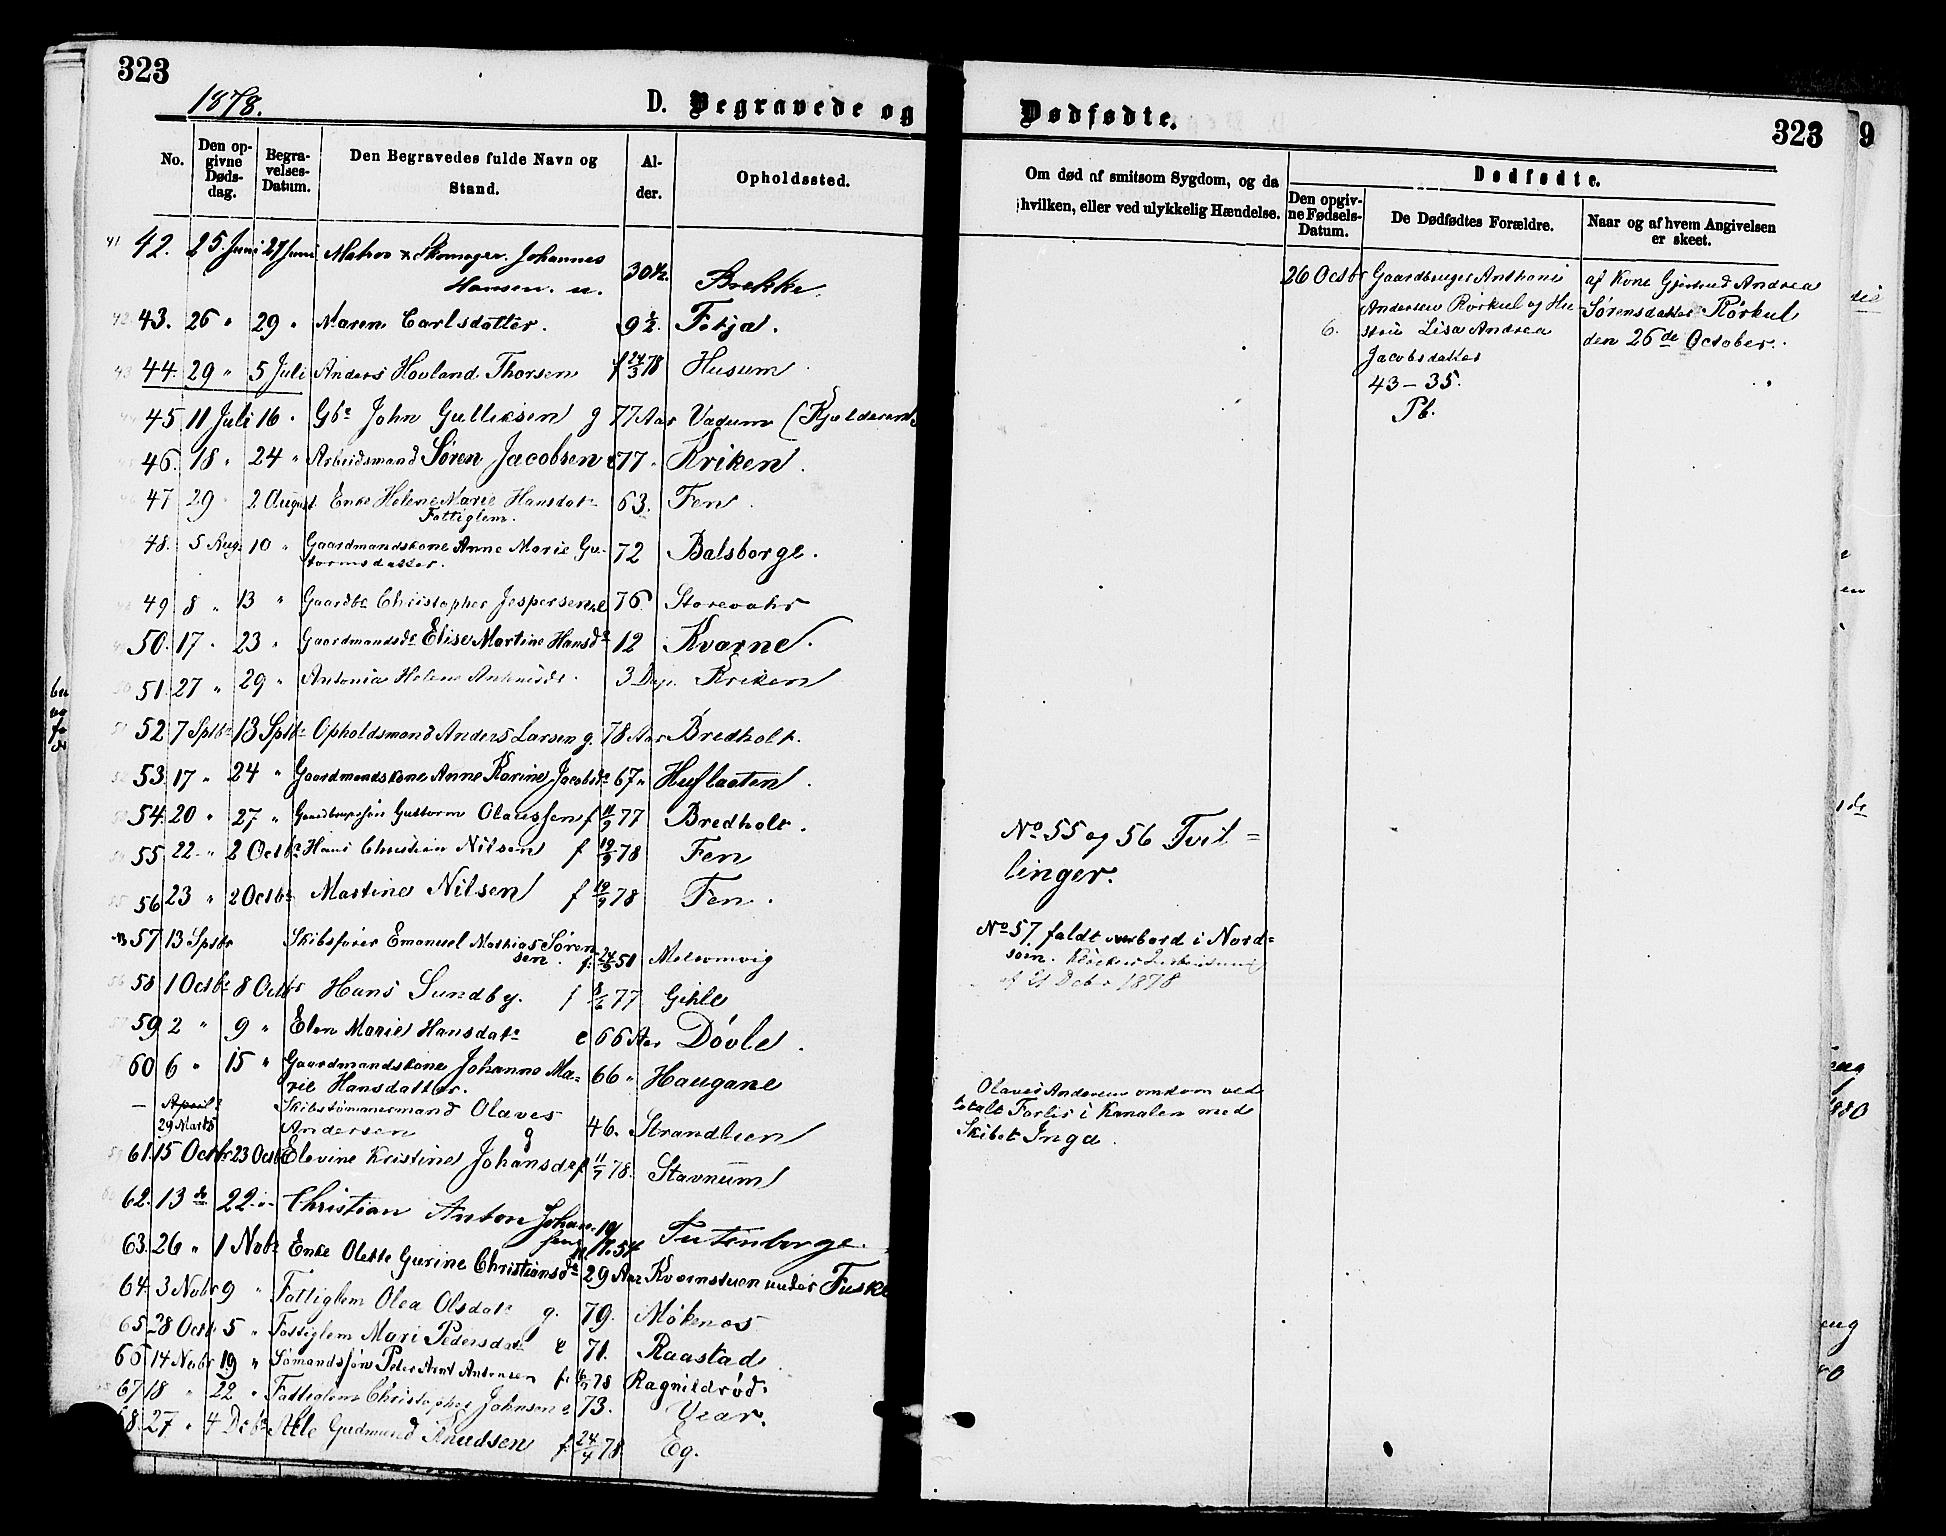 323
1878.
D. Begravede og
Dødfødte.
323
9
No.
Den op-
givne
Døds-
dag.
Begra-
velses-
Datum.
Den Begravedes fulde Navn og
Stand.
Al-
der.
Opholdssted.
Om død af smitsom Sygdom, og da
hvilken, eller ved ulykkelig Hændelse.
Dødfødte.
Den opgiv-
ne Fødsels-
Datum.
De Dødfødtes Forældre.
Naar og af hvem Angivelsen
er skeet.
41 42. 25 Juni 27 Juni Matros & Skomager Johannes
Hansen. u. 30 Brekke.
43. 26 " 29 " Maren Carlsdatter. 9½. Fokja.
44. 29 " 5 Juli Anders Hovland Thorsen f 24/3 78 Husum
45 11 Juli 16 " Gbr John Gulliksen g 77 Aar Vadum (Kjælderen
46. 18 " 24 " Arbeidsmand Søren Jacobsen e 77 " Kriken.
47 29 " 2 August Enke Helene Marie Hansdatr 63. Fen.
Fattiglem.
48. 5 Aug. 10 " Gaardmandskone Anne Marie Gu-
tormsdatter. 72 Balsborge.
49 8 " 13 " Gaardbr Christopher Jespersen e 76. Storevahr
50. 17 " 23 " Gaardmandsdr Elise Martine Hansdr 12 Kvarne.
51. 27 " 29 " Antonia Helene 3 Dage Kriken
52 7 Sptbr 13 Sptbr Opholdsmand Anders Larsen g. 78 Aar Bredholt.
53. 17 " 24 " Gaardmandskone Anne Karine Jacobsdr 67 " Huflaaten.
54. 20 " 27 " Guttorm Olaussen f 11/9 77 Bredholt.
55 22 " 2 Octbr Hans Christian Nilsen f 19/9 78 Fen
56 23 " 2 Octbr Martine Nilsen f 19/9 78 Fen.
57 13 Sptbr Skibsfører Emanuel Mathias Søren-
sen. f. 24/5 51 Melsomvig
58 1 Octbr 8 Octbr Hans Sundby. f 8/6 77 Gihle
59 2 " 9 " Elen Marie Hansdatr e 66 Aar Døvle.
60 6 " 15 " Gaardmandskone Johanne Ma-
rie Hansdatter. 66 " Haugane
— April
29 Marts Skibstømmermand Olaves
Andersen g 46. Strandteen
61. 15 Octbr 23 Octbr Elevine Kristine Johansdr f 11/7 78. Stavnum
62. 13 de 22 Christian Anton Johan-
sen 54 Tutenborge.
63. 26 " 1 Nobr Enke Olette Gurine Christiansdr 29 Aar Kvernstuen under Fuske
64. 3 Nobr 9 " Fattiglem Olea Olsdatr g. 79. Møkenæs
65 28 Octb. 5 " Fattiglem Mari Pedersdatr e 71. Raastad
66 14 Nobr 19 " Sømandssøn Peder Arnt Andersen f. 78 Ragnildrød.
67 18 " 22 " Fattiglem Christopher Johnsen e 73. Vear.
68. 27 " 4 Debr Atle Gudmund Knudsen f. 24/4 78. Eg.
26 Octbr
6.
Gaardbruger Anthoni
Andersen Rørkul og Hu-
stru Lisa Andrea
Jacobsdatter
43 – 35.
Pb.
af Kone Gjertrud Andrea
Sørensdatter Rørkul
den 26de October.
No 55 og 56 Tvil-
linger.
No 57 faldt overbord i Nord-
søen.
af 21 Debr 1878
Olaves Andersen omkom ved
totalt Forlis i Kanalen med
Skibet Inga.